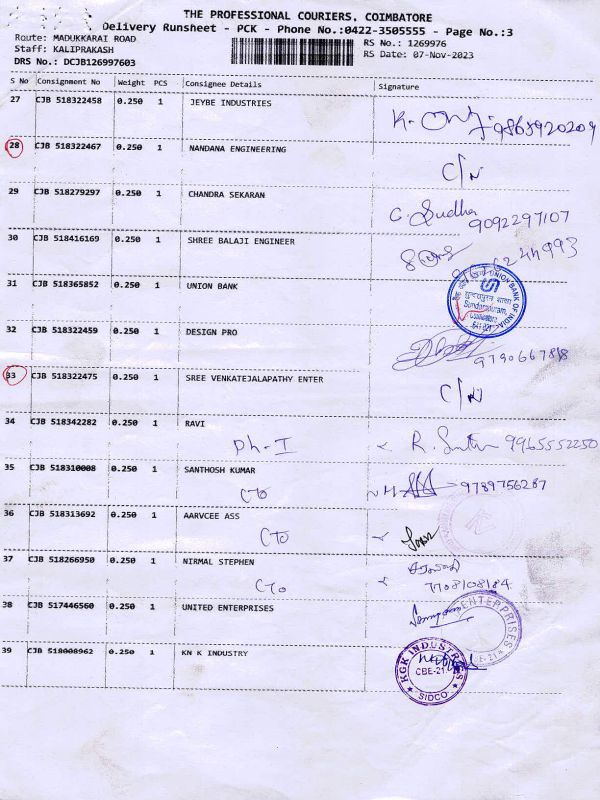 THE PROFESSIONAL COURIERS, COIMBATORE
Delivery Runsheet - PCK - Phone No.:0422-3505555 - Page No.:3
Route: MADUKKARAI ROAD
Staff: KALIPRAKASH
DRS No.: DCJB126997603
RS No.: 1269976
RS Date: 07-Nov-2023
S No Consignment No Weight PCS Consignee Details Signature
27 CJB 518322458 0.250 1 JEYBE INDUSTRIES
9865920209
28 CJB 518322467 0.250 1 NANDANA ENGINEERING
C/N
29 CJB 518279297 0.250 1 CHANDRA SEKARAN
C. Sudha
9092297107
30 CJB 518416169 0.250 1 SHREE BALAJI ENGINEER
31 CJB 518365852 0.250 1 UNION BANK
UNION BANK OF INDIA
Sundarapuram,
Coimbatore
641 021
32 CJB 518322459 0.250 1 DESIGN PRO
33 CJB 518322475 0.250 1 SREE VENKATEJALAPATHY ENTER
C/N
34 CJB 518342282 0.250 1 RAVI
Ph-I
9965552250
35 CJB 518310008 0.250 1 SANTHOSH KUMAR
CTO
9789756287
36 CJB 518313692 0.250 1 AARVCEE ASS
CTO
37 CJB 518266950 0.250 1 NIRMAL STEPHEN
CTO
7708108184
38 CJB 517446560 0.250 1 UNITED ENTERPRISES
ENTERPRISES
CBE-21.4
39 CJB 518008962 0.250 1 KN K INDUSTRY
KGK INDUSTRIES
CBE-21.
SIDCO